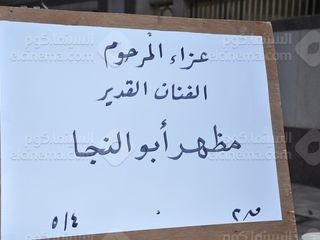 عزاء المرحوم
الفنان القدير
مظهر أبو النجا
٥/٤
السينما.كوم
elcinema.com